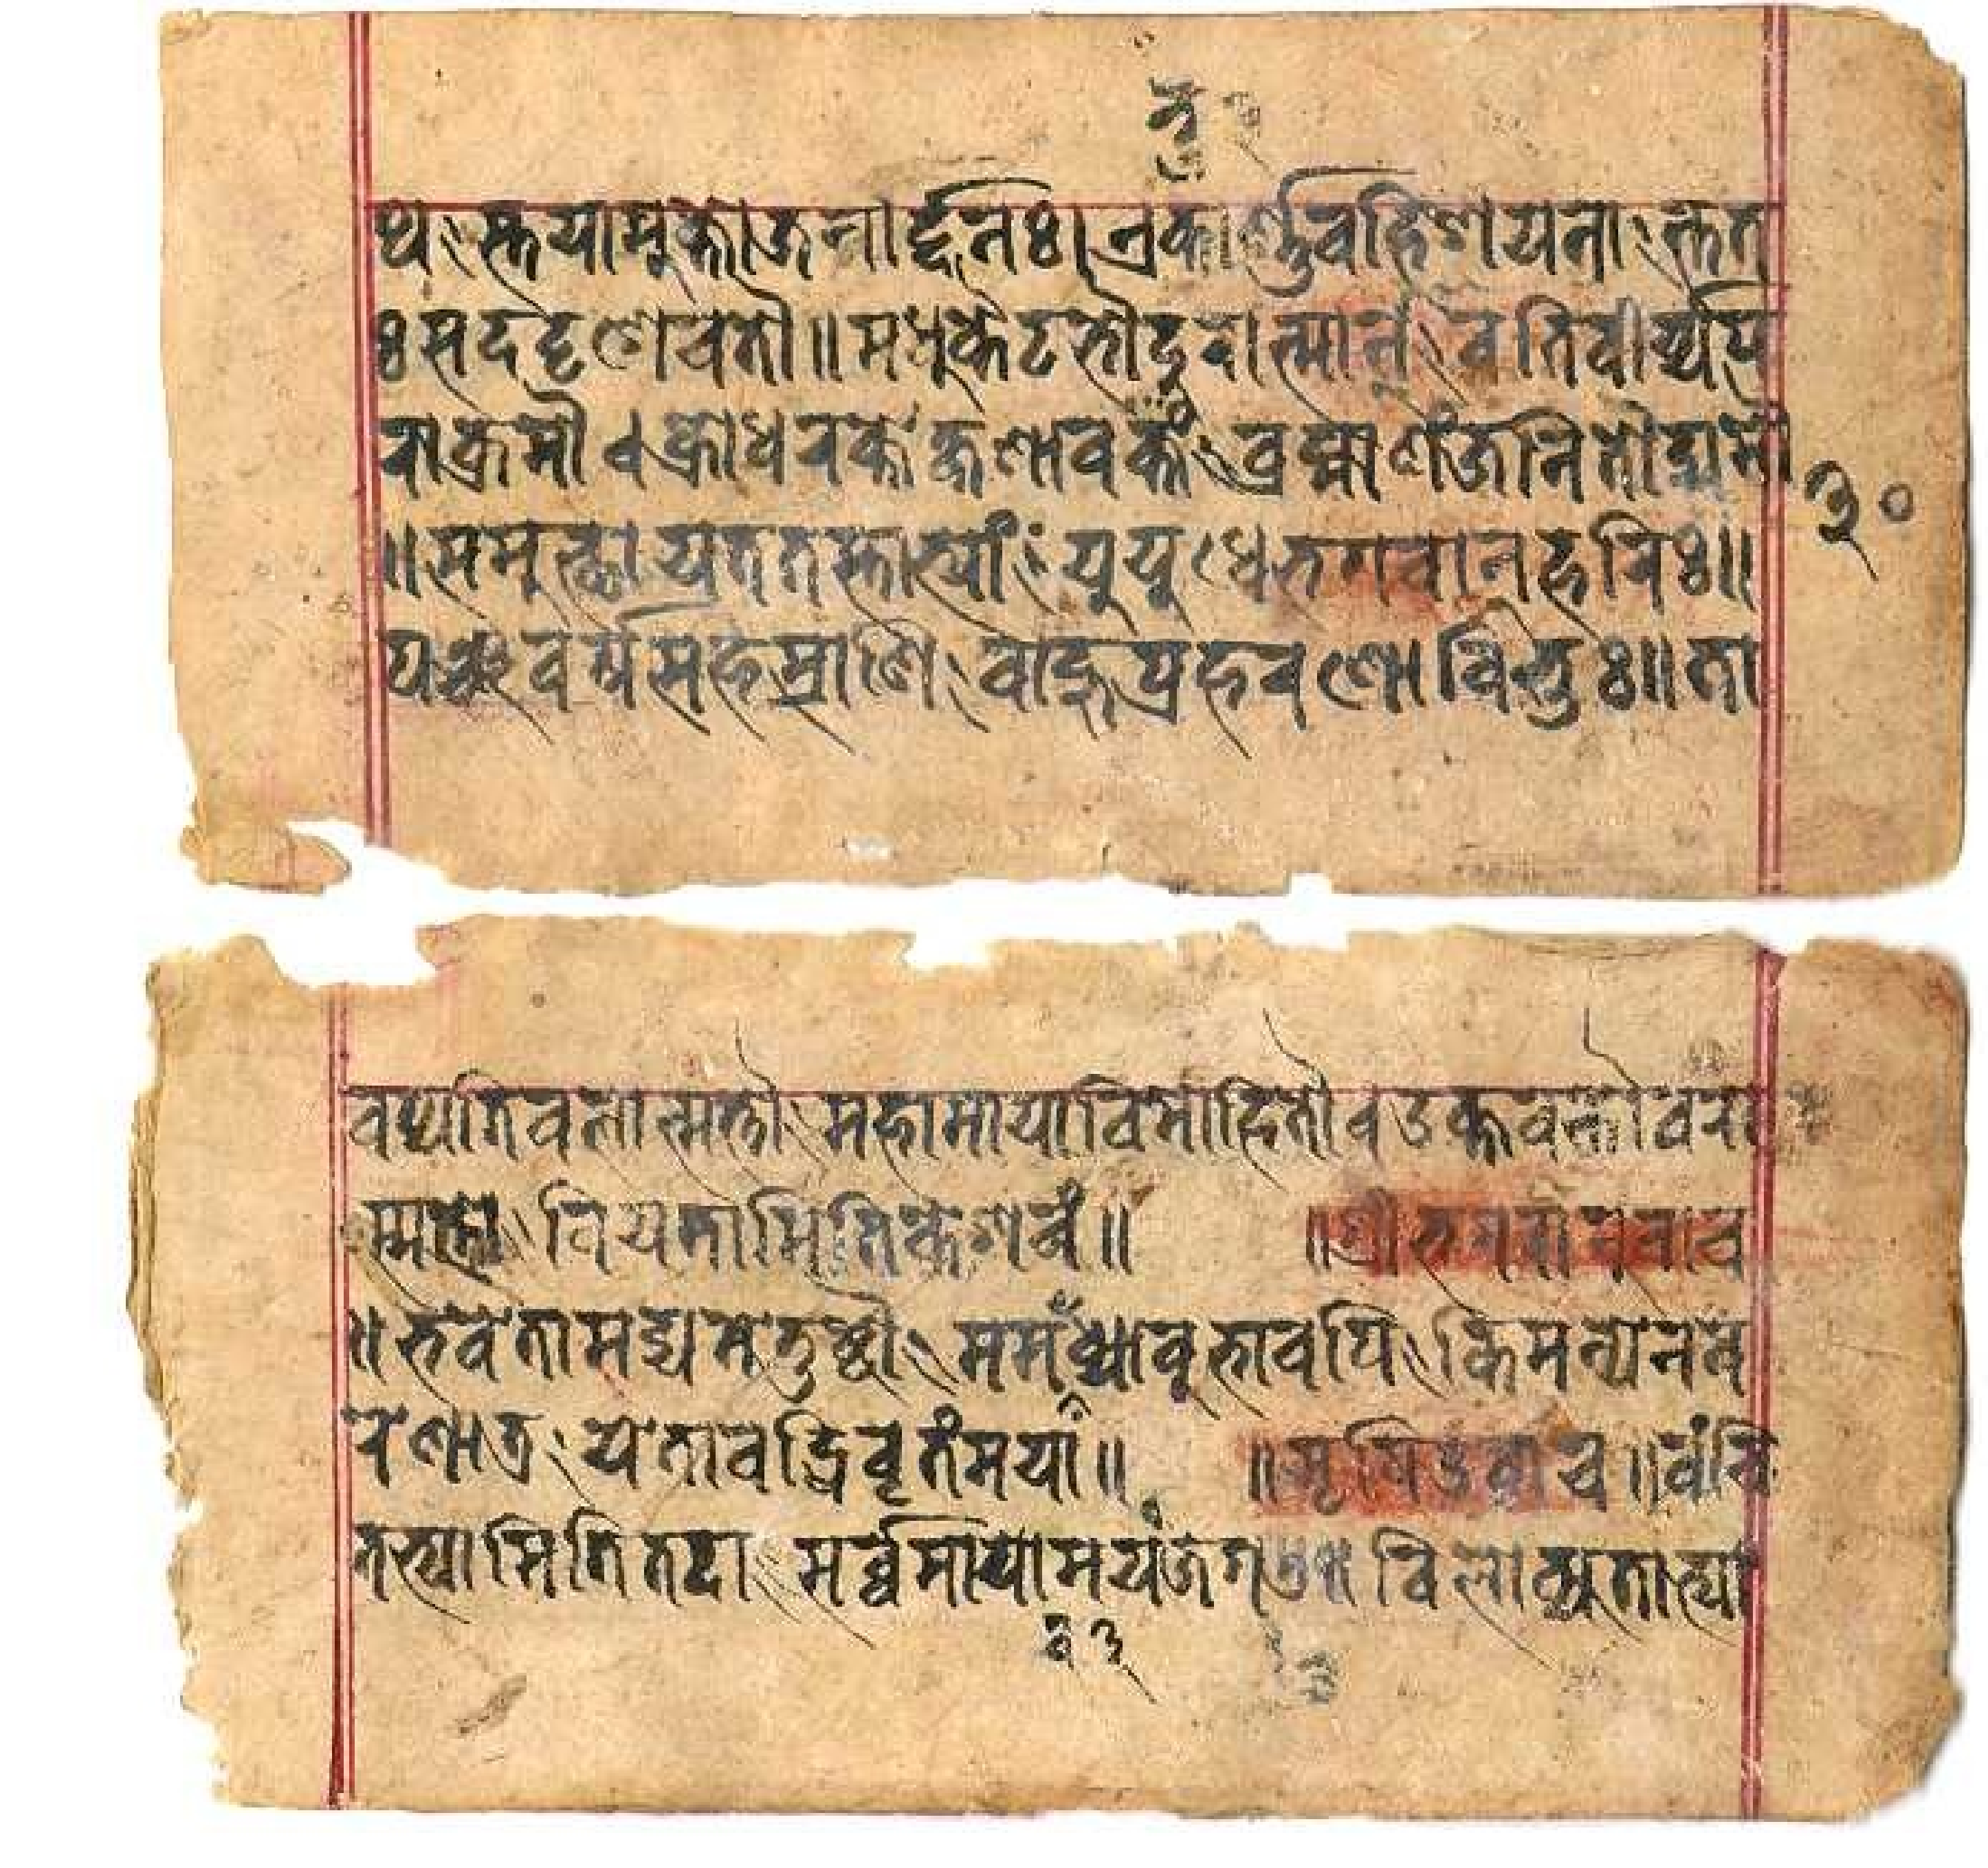 थःस्तयामूक्तोजनार्द्दनः।एकार्णवेहिशयनाःत्तत
ःसददृशेचतौ॥मधुकैटभौदुरात्मानावतिवीर्य्यप
राक्रमौक्रोधरक्तेक्षणावक्तुंब्रह्माणंजनितोद्यमौ
॥समुत्थायततस्ताभ्यांःयूयूधेभगवानहरिः॥
पञ्चवर्षसहस्राणिःवाहुप्रहरणोविभुः॥ता
वप्यतिवलोन्मत्तौमहामायाविमोहितौउक्तवन्तोवरो
स्मत्तोवियतामितिकेशवं॥ ॥श्रीभगवानुवाच
॥भवेतामद्यमेतुष्टौममवध्यावूभावपिकिमन्येनव
रेणात्रःयेतावद्धिवृतंमया॥ ॥ऋषिउवाच॥वंचि
तभ्यामितितदासर्व्वमापोमयंजगत्॥विलोक्यताभ्यां
३०
२३